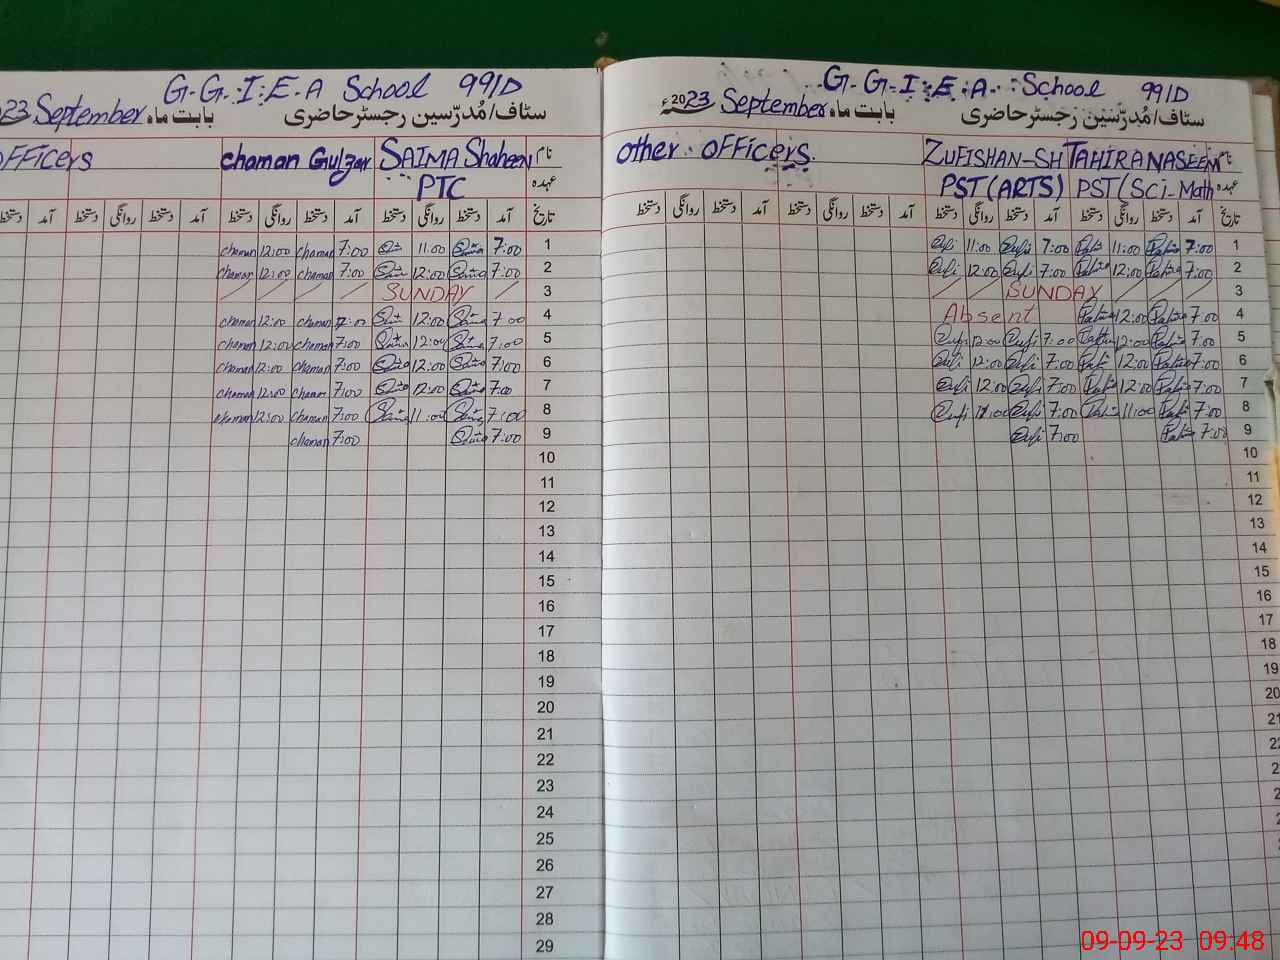 G.G.I.E.A School 991D
سٹاف/مُدرّسین رجسٹر حاضری بابت ماہ September 23
نام SAIMA Shaheen chaman Gulzar OFFicers
عہدہ PTC
تاریخ آمد دستخط روانگی دستخط آمد دستخط روانگی دستخط آمد دستخط روانگی دستخط آمد دستخط
1 7:00 11:00 7:00 chaman 12:00 chaman
2 7:00 12:00 7:00 chaman 12:00 chaman
3 SUNDAY
4 7:00 12:00 7:00 chaman 12:00 chaman
5 7:00 12:00 7:00 chaman 12:00 chaman
6 7:00 12:00 7:00 chaman 12:00 chaman
7 7:00 12:00 7:00 chaman 12:00 chaman
8 7:00 11:00 7:00 chaman 12:00 chaman
9 7:00 7:00 chaman
10
11
12
13
14
15
16
17
18
19
20
21
22
23
24
25
26
27
28
29
G.G.I.E.A. School 991D
سٹاف/مُدرّسین رجسٹر حاضری بابت ماہ September 2023ء
نام TAHIRA NASEEM ZUFISHAN-SH other OFFicers.
عہدہ PST(Sci-Math PST(ARTS)
تاریخ آمد دستخط روانگی دستخط آمد دستخط روانگی دستخط آمد دستخط روانگی دستخط آمد دستخط روانگی دستخط
1 7:00 11:00 7:00 Zufi 11:00 Zufi
2 7:00 12:00 7:00 Zufi 12:00 Zufi
3 SUNDAY
4 7:00 12:00 Absent
5 7:00 12:00 7:00 Zufi 12:00 Zufi
6 7:00 12:00 7:00 Zufi 12:00 Zufi
7 7:00 12:00 7:00 Zufi 12:00 Zufi
8 7:00 11:00 7:00 Zufi 11:00 Zufi
9 7:00 7:00 Zufi
10
11
12
13
14
15
16
17
18
19
20
21
09-09-23 09:48